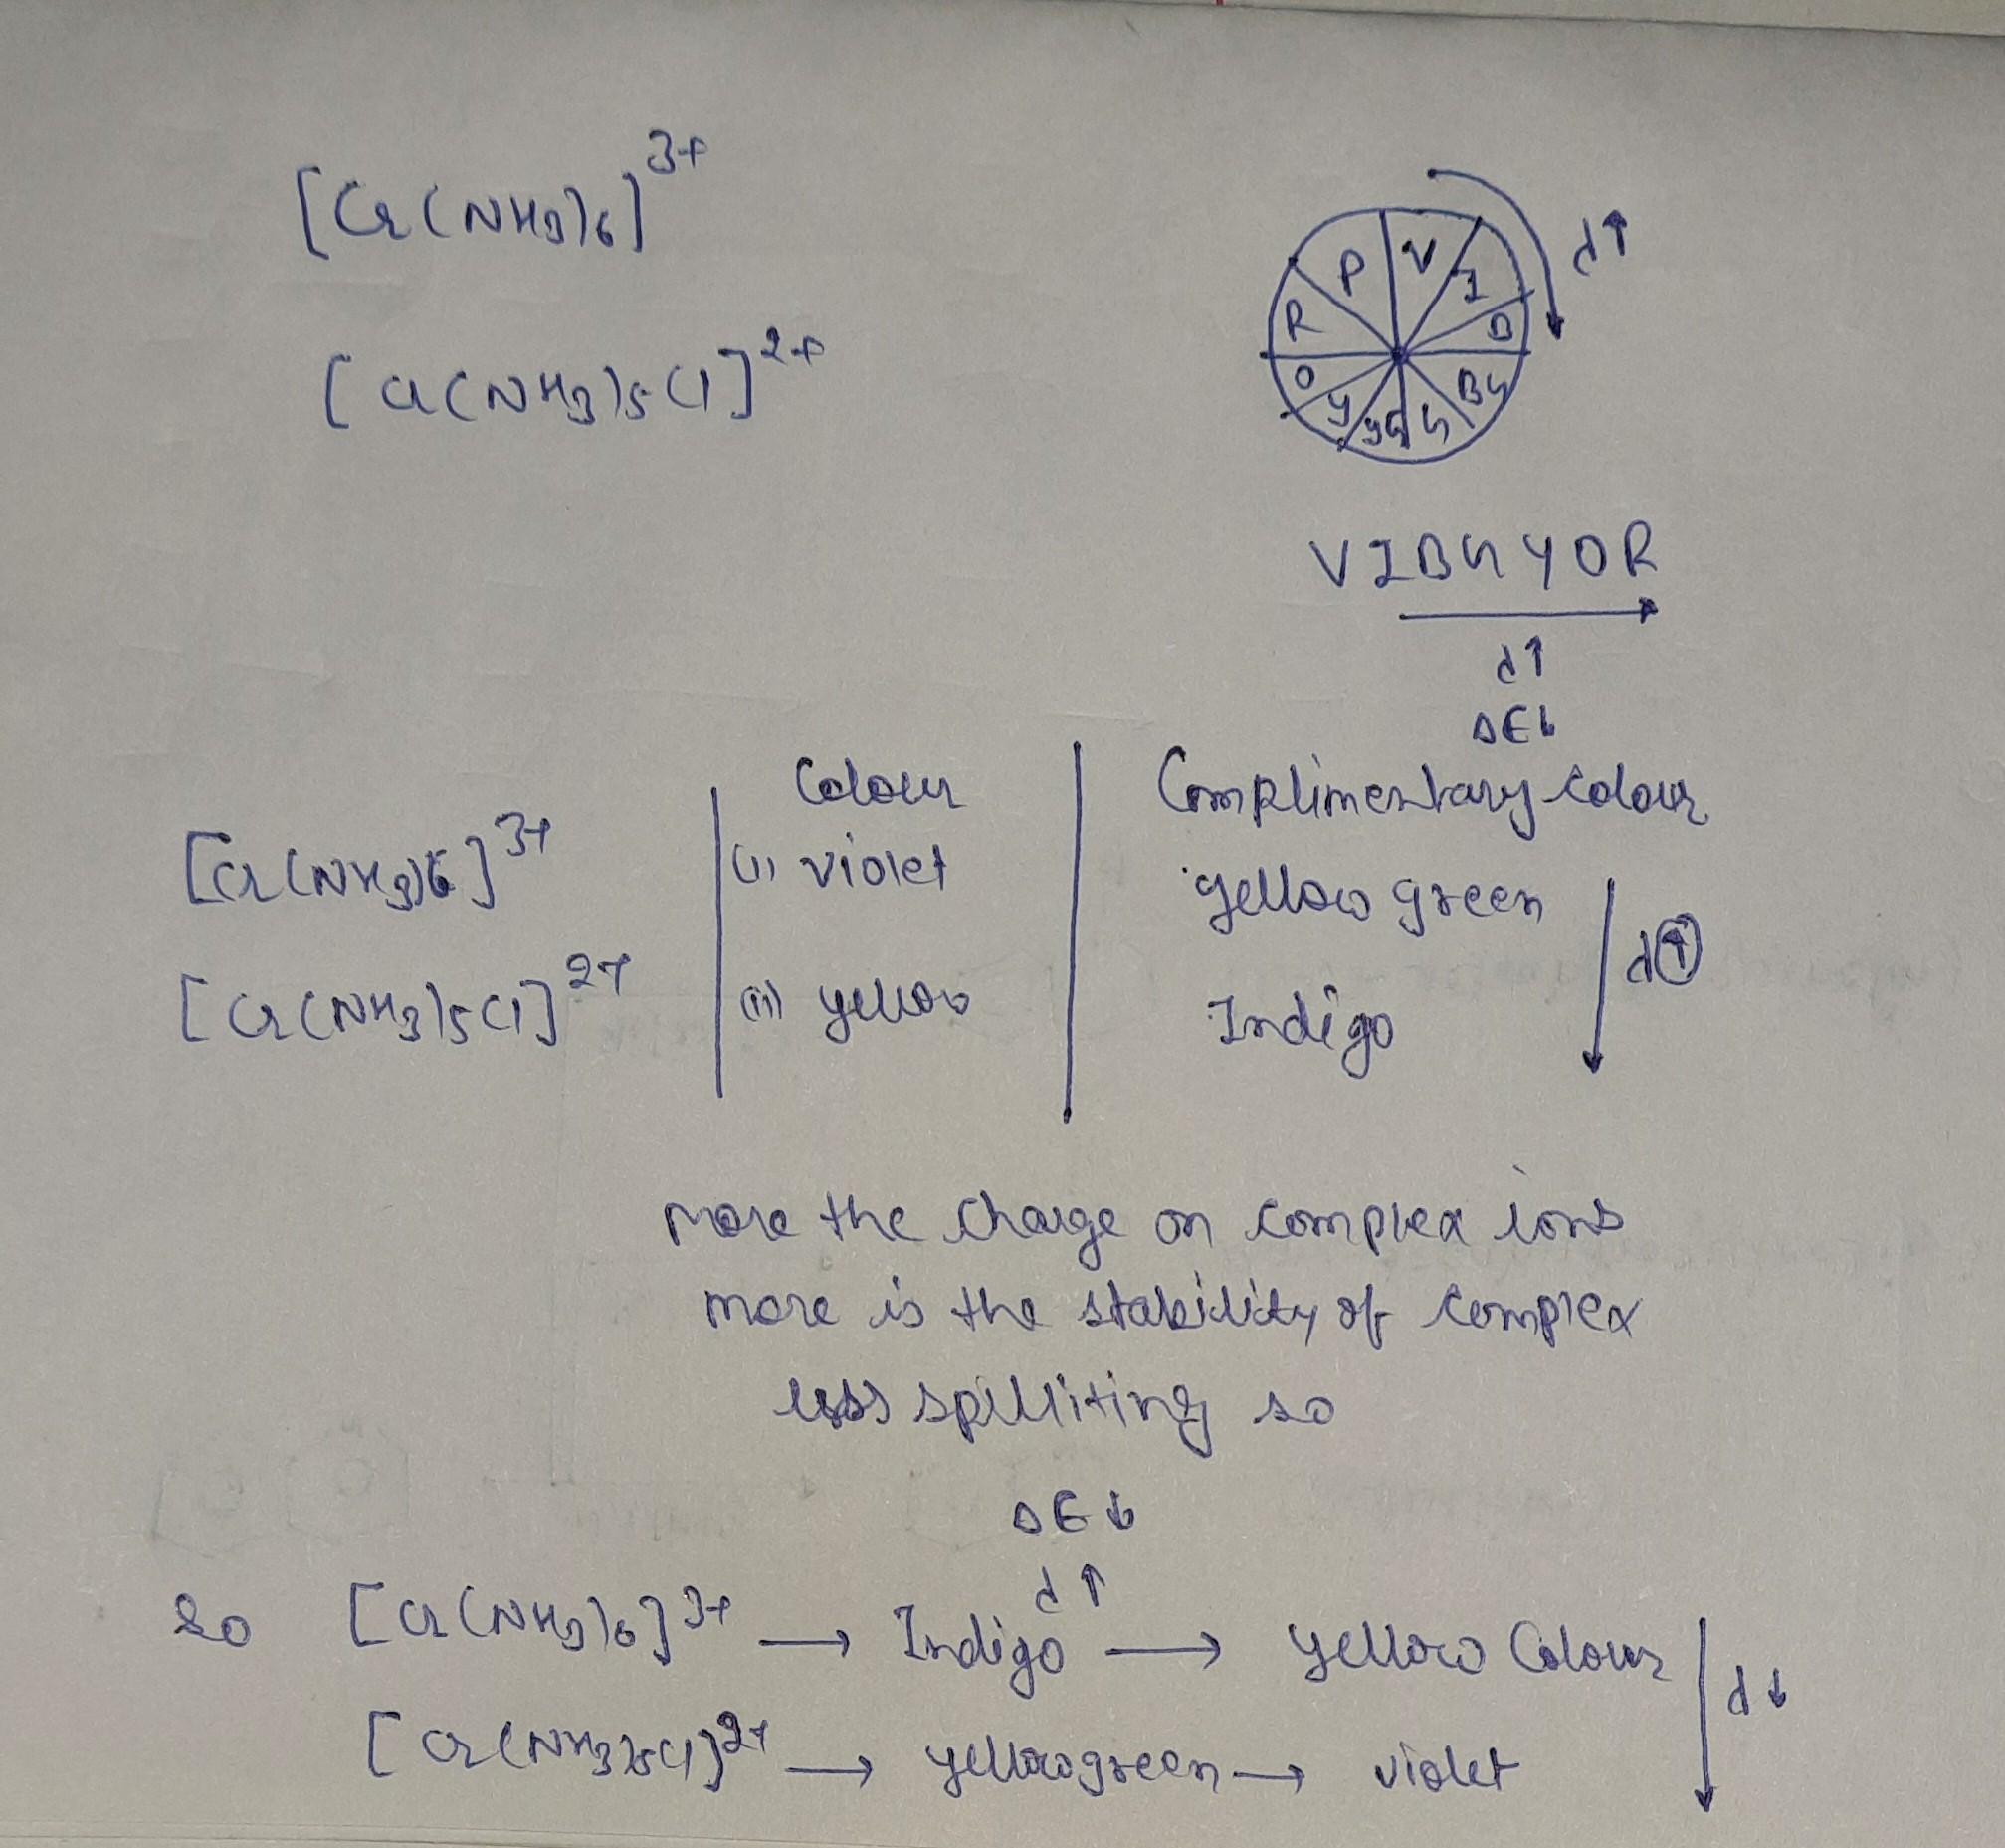 [Cr(NH3)6]3+
[Cr(NH3)5Cl]2+
P V I B BG G YG Y O R
d↑
VIBGYOR
d↑
ΔE↓
Colour Complimentary Colour
[Cr(NH3)6]3+ (i) violet yellow green
d↑
[Cr(NH3)5Cl]2+ (ii) yellow Indigo
more the charge on complex ions
more is the stability of complex
less spilliting so
ΔE↓
d↑
so [Cr(NH3)6]3+ → Indigo → yellow Colour
d↓
[Cr(NH3)5Cl]2+ → yellowgreen → violet